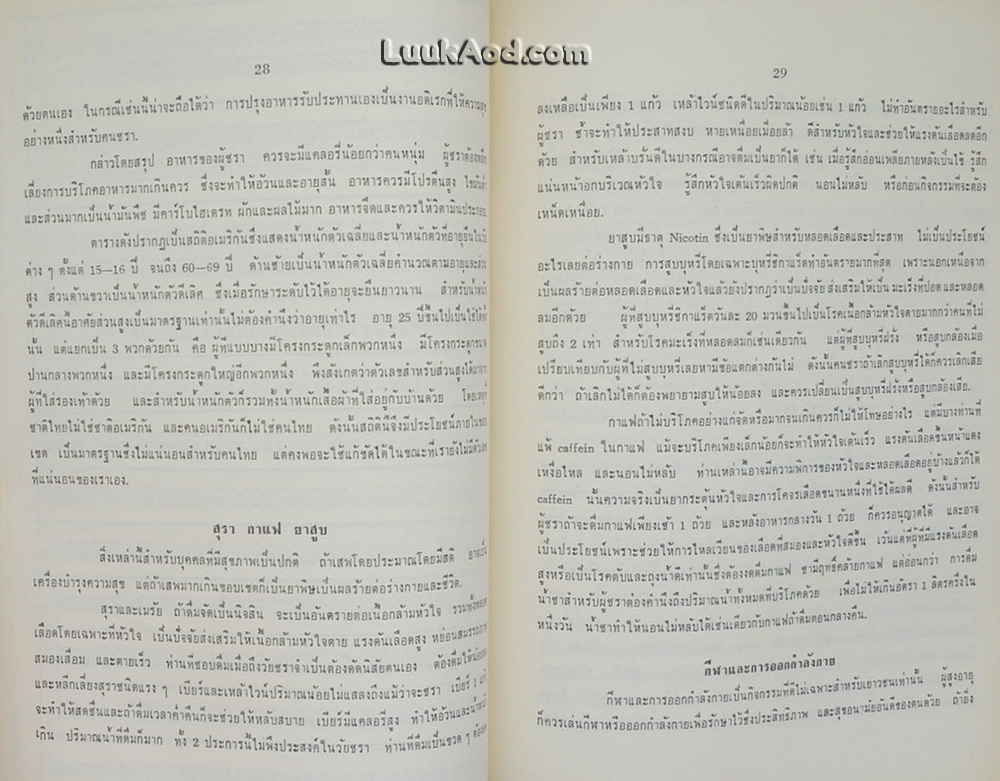 LuukAod.com
28
ด้วยตนเอง ในกรณีเช่นนี้น่าจะถือได้ว่า การปรุงอาหารรับประทานเองเป็นงานอดิเรกที่ให้ความสุข
อย่างหนึ่งสำหรับคนชรา.
กล่าวโดยสรุป อาหารของผู้ชรา ควรจะมีแคลอรี่น้อยกว่าคนหนุ่ม ผู้ชราต้องหลีก
เลี่ยงการบริโภคอาหารมากเกินควร ซึ่งจะทำให้อ้วนและอายุสั้น อาหารควรมีโปรตีนสูง ไขมันต่ำ
และส่วนมากเป็นน้ำมันพืช มีคาร์โบไฮเดรท ผักและผลไม้มาก อาหารจืดและควรให้วิตามินประกอบ.
ตารางดังปรากฏเป็นสถิติอเมริกันซึ่งแสดงน้ำหนักตัวเฉลี่ยและน้ำหนักตัวที่อายุยืนในวัย
ต่าง ๆ ตั้งแต่ 15—16 ปี จนถึง 60—69 ปี ด้านซ้ายเป็นน้ำหนักตัวเฉลี่ยคำนวณตามอายุและส่วน
สูง ส่วนด้านขวาเป็นน้ำหนักตัวดีเลิศ ซึ่งเมื่อรักษาระดับไว้ได้อายุจะยืนยาวนาน สำหรับน้ำหนัก
ตัวดีเลิศนี้อาศัยส่วนสูงเป็นมาตรฐานเท่านั้นไม่ต้องคำนึงว่าอายุเท่าไร อายุ 25 ปีขึ้นไปเป็นใช้ได้ทั้ง
นั้น แต่แยกเป็น 3 พวกด้วยกัน คือ ผู้ที่แบบบางมีโครงกระดูกเล็กพวกหนึ่ง มีโครงกระดูกขนาด
ปานกลางพวกหนึ่ง และมีโครงกระดูกใหญ่อีกพวกหนึ่ง พึงสังเกตว่าตัวเลขสำหรับส่วนสูงได้มาจาก
ผู้ที่ใส่รองเท้าด้วย และสำหรับน้ำหนักตัวก็รวมทั้งน้ำหนักเสื้อผ้าที่ใส่อยู่กับบ้านด้วย โดยเหตุที่
ชาติไทยไม่ใช่ชาติอเมริกัน และคนอเมริกันก็ไม่ใช่คนไทย ดังนั้นสถิตินี้จึงมีประโยชน์ภายในขอบ
เขต เป็นมาตรฐานซึ่งไม่แน่นอนสำหรับคนไทย แต่คงพอจะใช้แก้ขัดได้ในขณะที่เรายังไม่มีตัวเลข
ที่แน่นอนของเราเอง.
สุรา กาแฟ ยาสูบ
สิ่งเหล่านี้สำหรับบุคคลที่มีสุขภาพเป็นปกติ ถ้าเสพโดยประมาณโดยมีสติ อาจเป็น
เครื่องบำรุงความสุข แต่ถ้าเสพมากเกินขอบเขตก็เป็นยาพิษเป็นผลร้ายต่อร่างกายและชีวิต.
สุราและเมรัย ถ้าดื่มจัดเป็นนิจสิน จะเป็นอันตรายต่อเนื้อกล้ามหัวใจ รวมทั้งหลอด
เลือดโดยเฉพาะที่หัวใจ เป็นปัจจัยส่งเสริมให้เนื้อกล้ามหัวใจตาย แรงดันเลือดสูง หย่อนสมรรถภาพ
สมองเสื่อม และตายเร็ว ท่านที่ชอบดื่มเมื่อถึงวัยชราจำเป็นต้องดัดนิสัยตนเอง ต้องดื่มให้น้อยลง
และหลีกเลี่ยงสุราชนิดแรง ๆ เบียร์และเหล้าไวน์ปริมาณน้อยไม่แสลงถึงแม้ว่าจะชรา เบียร์ 1 แก้ว
จะทำให้สดชื่นและถ้าดื่มเวลาค่ำคืนก็จะช่วยให้หลับสบาย เบียร์มีแคลอรี่สูง ทำให้อ้วนและน้ำหนัก
เกิน ปริมาณน้ำที่ดื่มก็มาก ทั้ง 2 ประการนี้ไม่พึงประสงค์ในวัยชรา ท่านที่ดื่มเป็นขวด ๆ ต้องลด
29
ลงเหลือเป็นเพียง 1 แก้ว เหล้าไวน์ชนิดดีในปริมาณน้อยเช่น 1 แก้ว ไม่ทำอันตรายอะไรสำหรับ
ผู้ชรา ซ้ำจะทำให้ประสาทสงบ หายเหนื่อยเมื่อยล้า ดีสำหรับหัวใจและช่วยให้แรงดันเลือดลดอีก
ด้วย สำหรับเหล้าบรั่นดีในบางกรณีอาจดื่มเป็นยาก็ได้ เช่น เมื่อรู้สึกอ่อนเพลียภายหลังเป็นไข้ รู้สึก
แน่นหน้าอกบริเวณหัวใจ รู้สึกหัวใจเต้นเร็วผิดปกติ นอนไม่หลับ หรือก่อนกิจกรรมที่จะต้อง
เหน็ดเหนื่อย.
ยาสูบมีธาตุ Nicotin ซึ่งเป็นยาพิษสำหรับหลอดเลือดและประสาท ไม่เป็นประโยชน์
อะไรเลยต่อร่างกาย การสูบบุหรี่โดยเฉพาะบุหรี่ซิกาแร็ตทำอันตรายมากที่สุด เพราะนอกเหนือจาก
เป็นผลร้ายต่อหลอดเลือดและหัวใจแล้วยังปรากฏว่าเป็นปัจจัยส่งเสริมให้เป็นมะเร็งที่ปอดและหลอด
ลมอีกด้วย ผู้ที่สูบบุหรี่ซิกาแร็ตวันละ 20 มวนขึ้นไปเป็นโรคเนื้อกล้ามหัวใจตายมากกว่าคนที่ไม่
สูบถึง 2 เท่า สำหรับโรคมะเร็งที่หลอดลมก็เช่นเดียวกัน แต่ผู้ที่สูบบุหรี่ฝรั่ง หรือสูบกล้องเมื่อ
เปรียบเทียบกับผู้ที่ไม่สูบบุหรี่เลยหามีข้อแตกต่างกันไม่ ดังนั้นคนชราถ้าเลิกสูบบุหรี่ได้ก็ควรเลิกเสีย
ดีกว่า ถ้าเลิกไม่ได้ก็ต้องพยายามสูบให้น้อยลง และควรเปลี่ยนเป็นสูบบุหรี่ฝรั่งหรือสูบกล้องเสีย.
กาแฟถ้าไม่บริโภคอย่างแก่จัดหรือมากจนเกินควรก็ไม่ให้โทษอย่างไร แต่มีบางท่านที่
แพ้ caffein ในกาแฟ แม้จะบริโภคเพียงเล็กน้อยก็จะทำให้หัวใจเต้นเร็ว แรงดันเลือดขึ้นหน้าแดง
เหงื่อไหล และนอนไม่หลับ ท่านเหล่านี้อาจมีความพิการของหัวใจและหลอดเลือดอยู่บ้างแล้วก็ได้
caffein นั้นความจริงเป็นยากระตุ้นหัวใจและการโคจรเลือดขนานหนึ่งที่ใช้ได้ผลดี ดังนั้นสำหรับ
ผู้ชราถ้าจะดื่มกาแฟเพียงเช้า 1 ถ้วย และหลังอาหารกลางวัน 1 ถ้วย ก็ควรอนุญาตได้ และอาจ
เป็นประโยชน์เพราะช่วยให้การไหลเวียนของเลือดที่สมองและหัวใจดีขึ้น เว้นแต่ที่ผู้ที่มีแรงดันเลือด
สูงหรือเป็นโรคตับและถุงน้ำดีเท่านั้นซึ่งต้องงดดื่มกาแฟ ชามีฤทธิ์คล้ายกาแฟ แต่อ่อนกว่า การดื่ม
น้ำชาสำหรับผู้ชราต้องคำนึงถึงปริมาณน้ำทั้งหมดที่บริโภคด้วย เพื่อไม่ให้เกินอัตรา 1 ลิตรครึ่งใน
หนึ่งวัน น้ำชาทำให้นอนไม่หลับได้เช่นเดียวกับกาแฟถ้าดื่มตอนกลางคืน.
กีฬาและการออกกำลังกาย
กีฬาและการออกกำลังกายเป็นกิจกรรมที่ดีไม่เฉพาะสำหรับเยาวชนเท่านั้น ผู้สูงอายุ
ก็ควรเล่นกีฬาหรือออกกำลังกายเพื่อรักษาไว้ซึ่งประสิทธิภาพ และสุขอนามัยอันดีของตนด้วย ถ้ายิ่ง